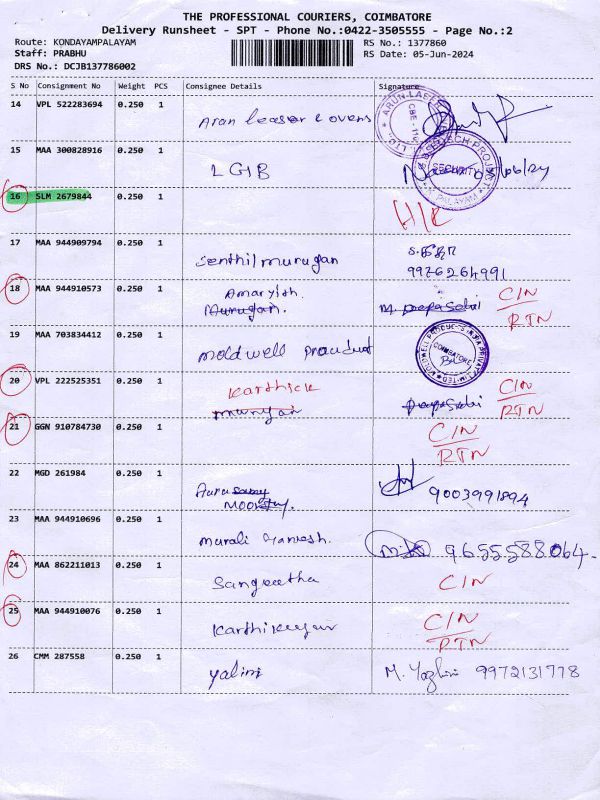 THE PROFESSIONAL COURIERS, COIMBATORE
Delivery Runsheet - SPT - Phone No.:0422-3505555 - Page No.:2
Route: KONDAYAMPALAYAM RS No.: 1377860
Staff: PRABHU RS Date: 05-Jun-2024
DRS No.: DCJB137786002
S No Consignment No Weight PCS Consignee Details Signature
14 VPL 522283694 0.250 1
15 MAA 300828916 0.250 1 LGB SECURITY
16 SLM 2679844 0.250 1
17 MAA 944909794 0.250 1 Senthil murugan
9976264991
18 MAA 944910573 0.250 1 Amaryish. C/N
Murugan. RTN
19 MAA 703834412 0.250 1 moldwell COIMBATORE
20 VPL 222525351 0.250 1 Karthick C/N
murugan RTN
21 GGN 910784730 0.250 1 C/N
RTN
22 MGD 261984 0.250 1 9003991894
23 MAA 944910696 0.250 1 murali Ganesh. 9655588064.
24 MAA 862211013 0.250 1 Sangeetha C/N
25 MAA 944910076 0.250 1 C/N
RTN
26 CMM 287558 0.250 1 yalini M. Yazhini 9972131778